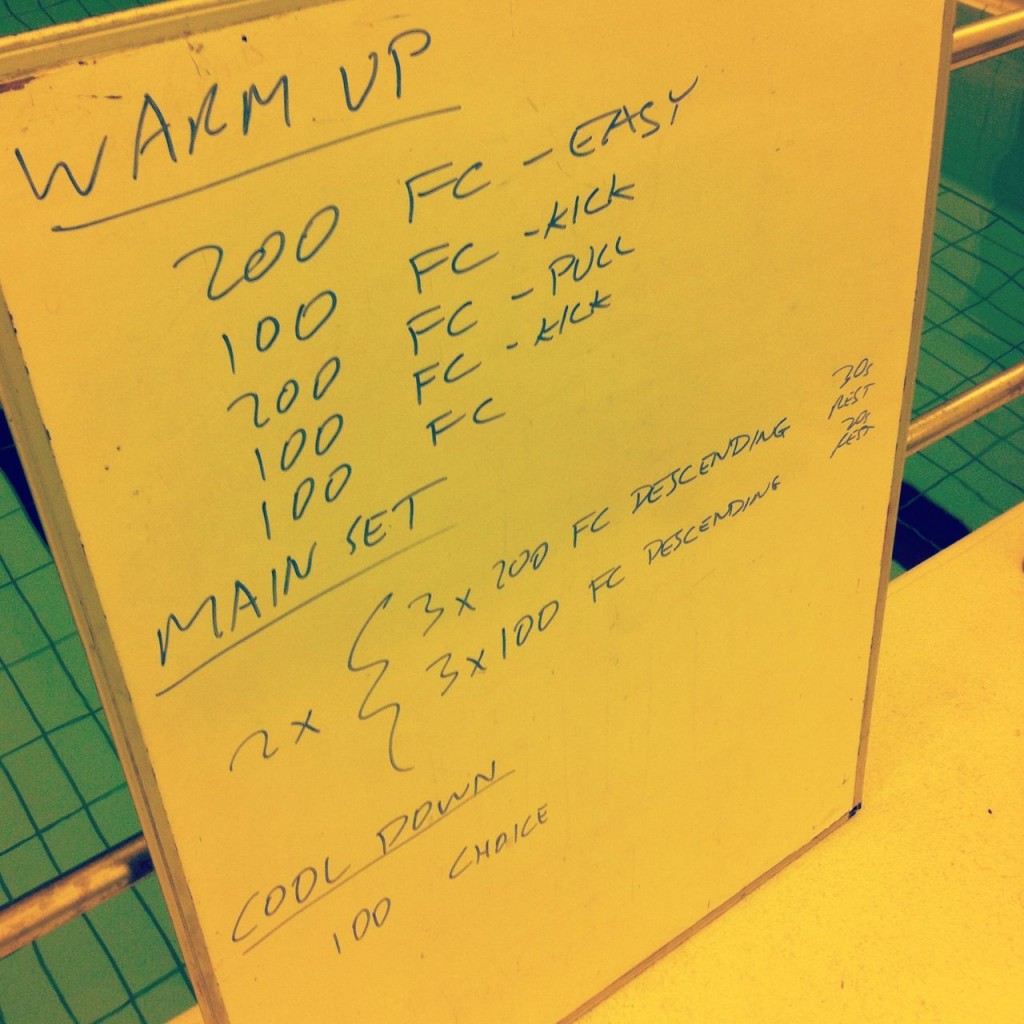 WARM UP
200 FC - EASY
100 FC - KICK
200 FC - PULL
100 FC - KICK
100 FC
MAIN SET
2 x { 3 x 200 FC DESCENDING 30s REST
3 x 100 FC DESCENDING 20s REST
COOL DOWN
100 CHOICE